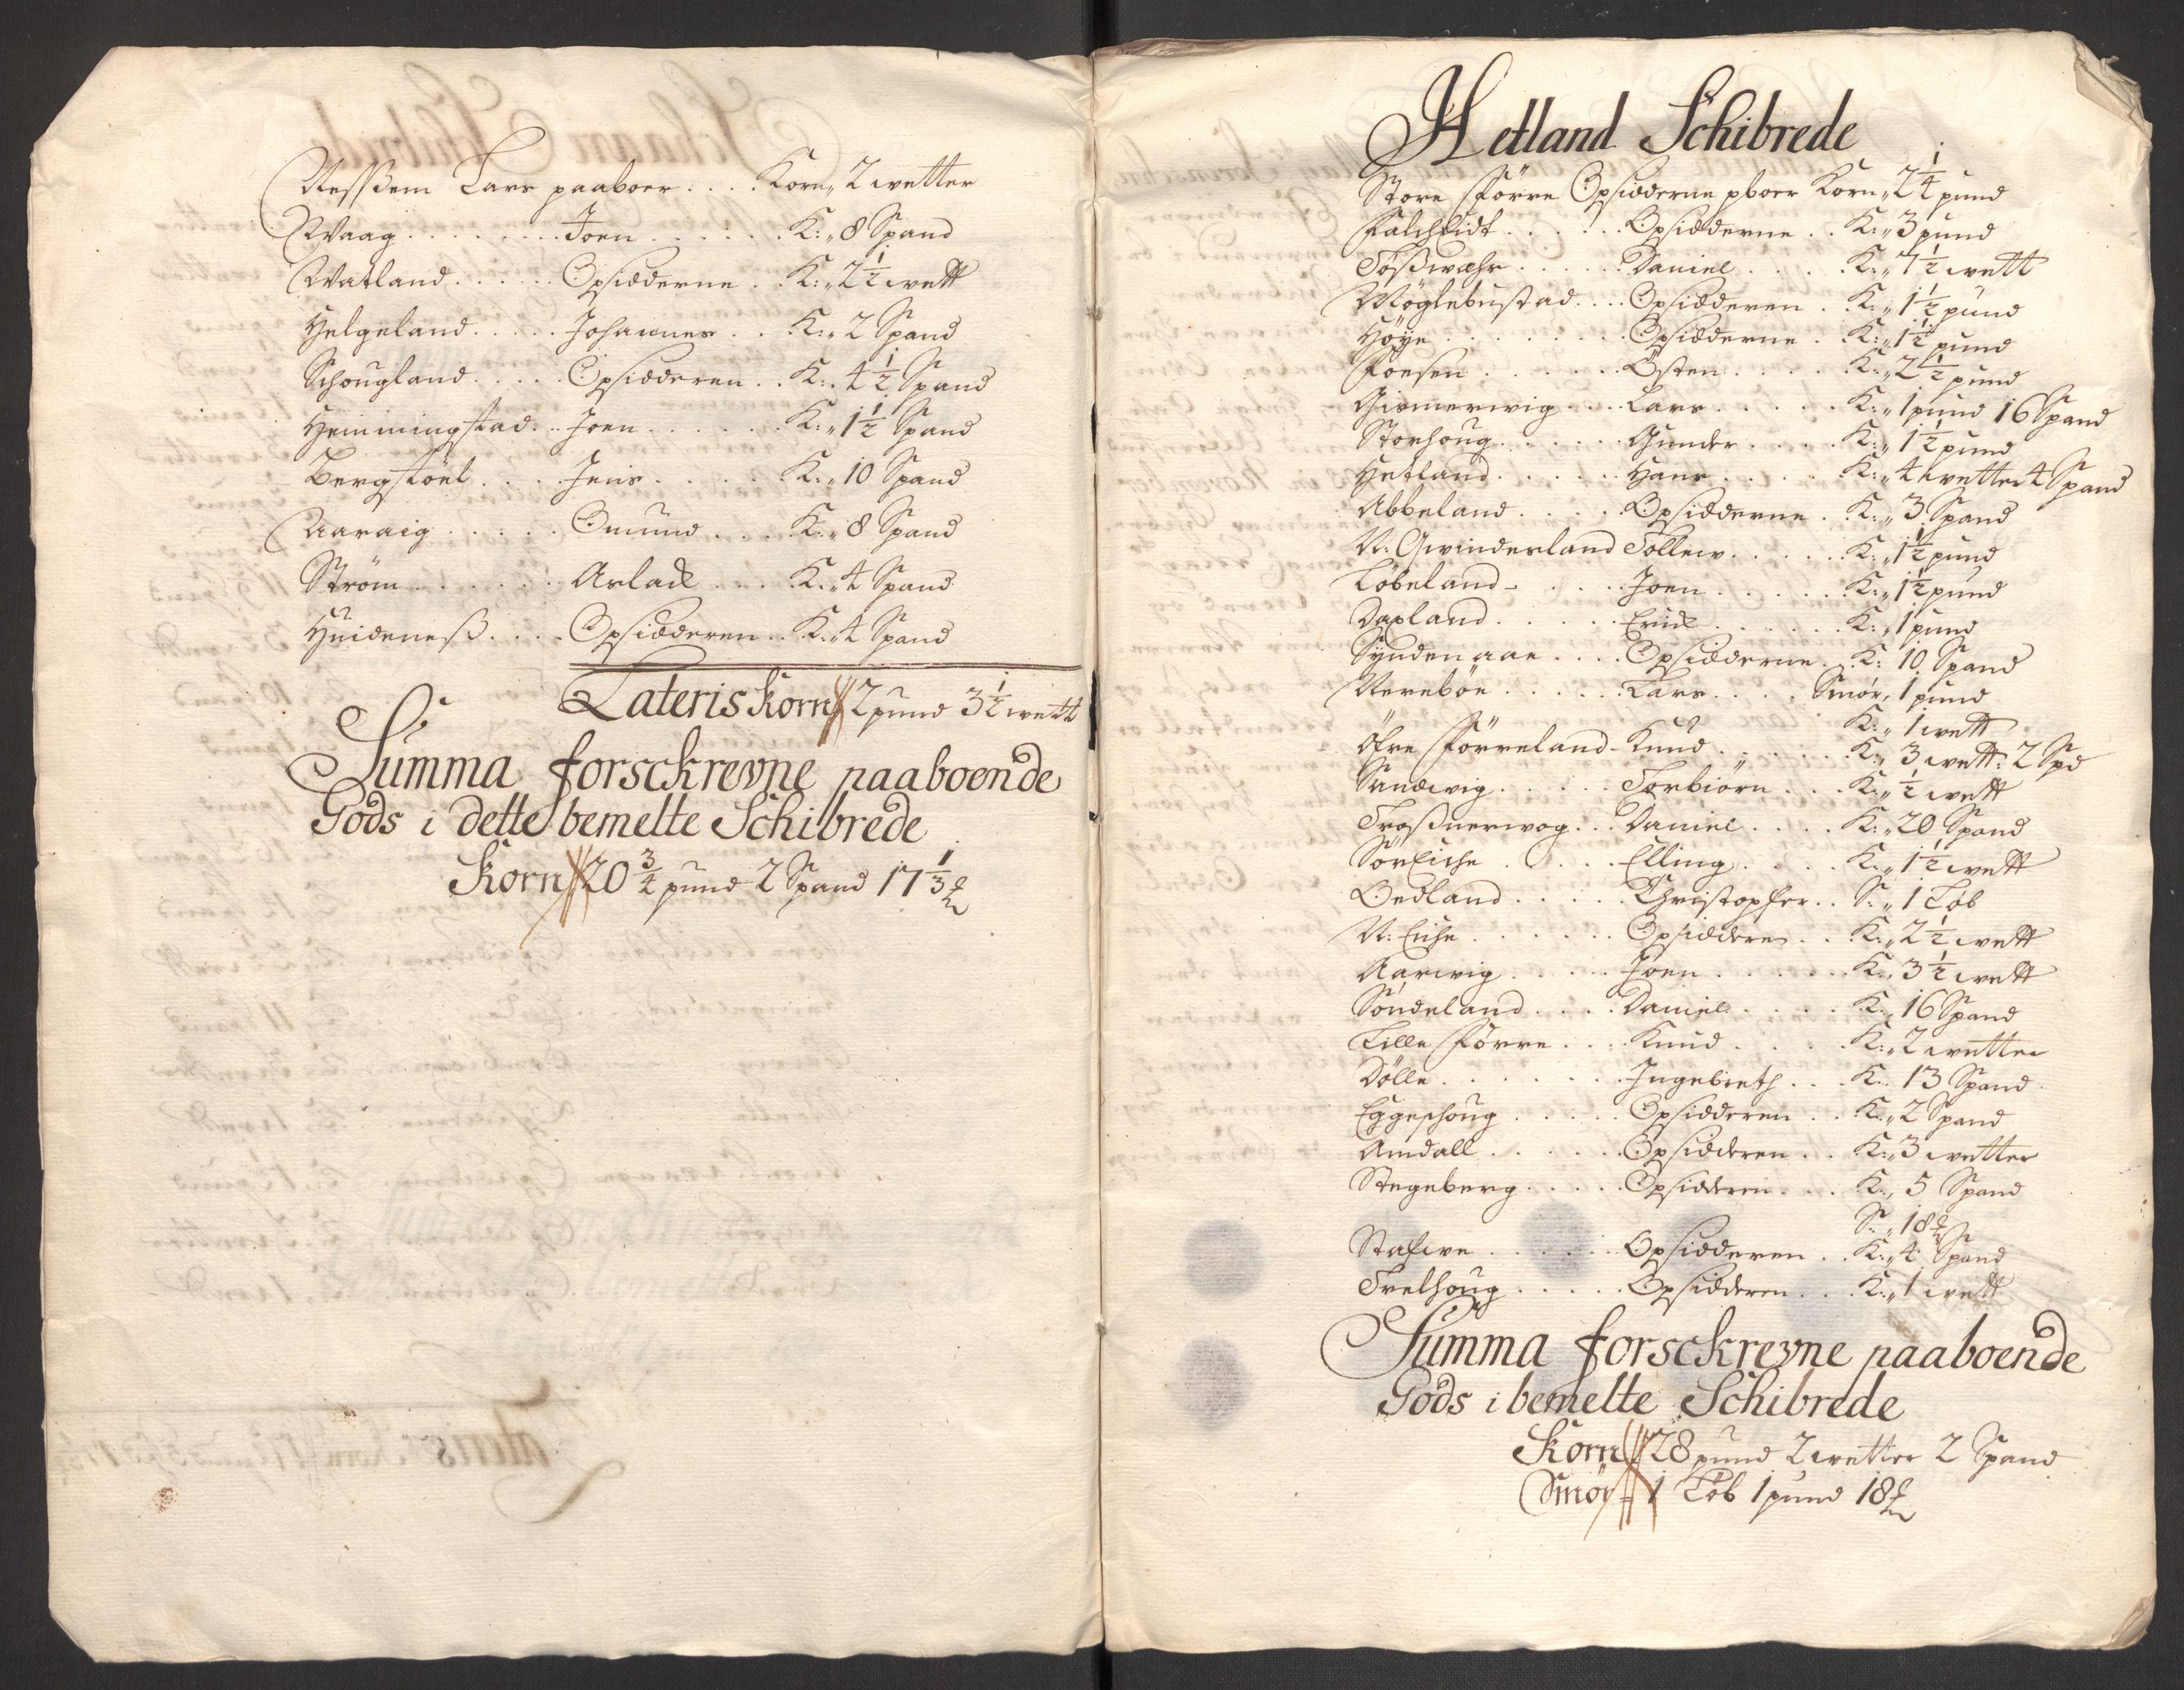 Nessem Lars paaboer . . . . Korn „ 2 wetter
Waag . . . . . . . . Joen . . . . . . K: „ 8 Spand
Watland . . . . . . Opsidderne . . K: „ 2 1/2 wett
Helgeland . . . . . Johannes . . K: „ 2 Spand
Schougland . . . . . Opsidderen . . K: „ 4 1/2 Spand
Hemmingstad . . Joen . . . . . . K: „ 1 1/2 Spand
Bergstöel . . . . Jens . . . . . K: „ 10 Spand
Aaraig . . . . . . Omund . . . . K: „ 8 Spand
Ström . . . . . . . Aslack . . . K: „ 4 Spand
Huideneß . . . . Opsidderen . . K: „ 4 Spand
Lateris Korn 2 pund 3 1/2 wett
Summa forsckrevne paaboende
Gods i dette bemelte Schibrede
Korn 20 3/4 pund 2 Spand 17 1/3 ℔
Hetland Schibrede
Store Förre Opsidderne pboer Korn „ 2 1/4 pund
Falcheidt . . . . . . Opsidderne . . K: „ 3 pund
Tößwahr . . . . . Daniel . . . . K: „ 7 1/2 wett
Möglebustad . . . . Opsidderen . K: „ 1 1/2 pund
Höye . . . . . . . . Opsidderne . K: „ 1 1/2 pund
Foesen . . . . . . Östen . . . . . K: „ 2 1/2 pund
Gismerwig . . . Lars . . . . . K: „ 1 pund 16 Spand
Storhoug . . . . . . Gunder . . . . K: „ 1 1/2 pund
Hetland . . . . . . Hans . . . . K: „ 4 wetter 4 Spand
Abbeland . . . . Opsidderne . K: „ 3 Spand
N: Qvindesland Tollew . . . . . K: „ 1 1/2 pund
Löbeland - . . . Joen . . . . . . K: „ 1 1/2 pund
Dapland . . . . . Erick . . . . . . K: „ 1 pund
Synden aae . . . . Opsidderne . K: 10 Spand
Nereböe . . . . . . Lars . . . . Smör „ 1 pund
K: „ 1 wett
Öfre Förreland - Knud . . . . . K: „ 3 wett: 2 Spd
Sandvig . . . . . Torbiörn . . . K: „ 1/2 wett
Troßnerwog . . . Daniel . . . . K: „ 20 Spand
Sör Eiche . . . . . Elling . . . . K: „ 1 1/2 wett
Oedland . . . . . Christopher . . S: „ 1 Löb
N: Eiche . . . . . . Opsidderen . . K: „ 2 1/2 wett
Aarwig . . . . . Joen . . . . . . K: „ 3 1/2 wett
Söndeland . . . . Daniel . . . . K: „ 16 Spand
Lille Förre . . . . Knud . . . . K: „ 2 wetter
Dölle . . . . . . . Ingebreth . . . K: „ 13 Spand
Eggeshoug . . . . . Opsidderen . . K: „ 2 Spand
Amdall . . . . . . Opsidderen . . K: „ 3 wetter
Stegeberg . . . . . Opsidderen . . . K: „ 5 Spand
S: „ 18 ℔
Stafwe . . . . . . Opsidderen . . K: „ 4 Spand
Trelhoug . . . . . Opsidderen . . . K: „ 1 wett
Summa forsckrevne paaboende
Gods i bemelte Schibrede
Korn 28 pund 2 wetter 2 Spand
Smör = 1 Löb 1 pund 18 ℔